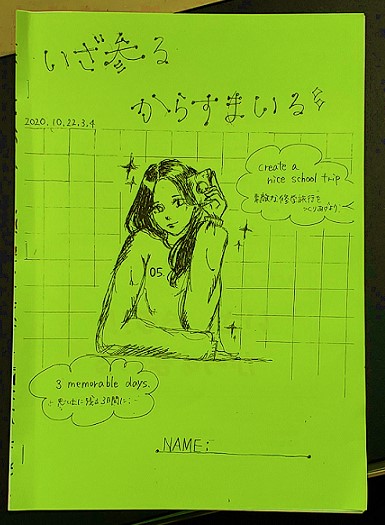 いざ参る
からすまいる
2020.10.22.3.4
create a
nice school trip
素敵な修学旅行を
つくりあげよう!
05.
3 memorable days.
思い出に残る3日間に
NAME: